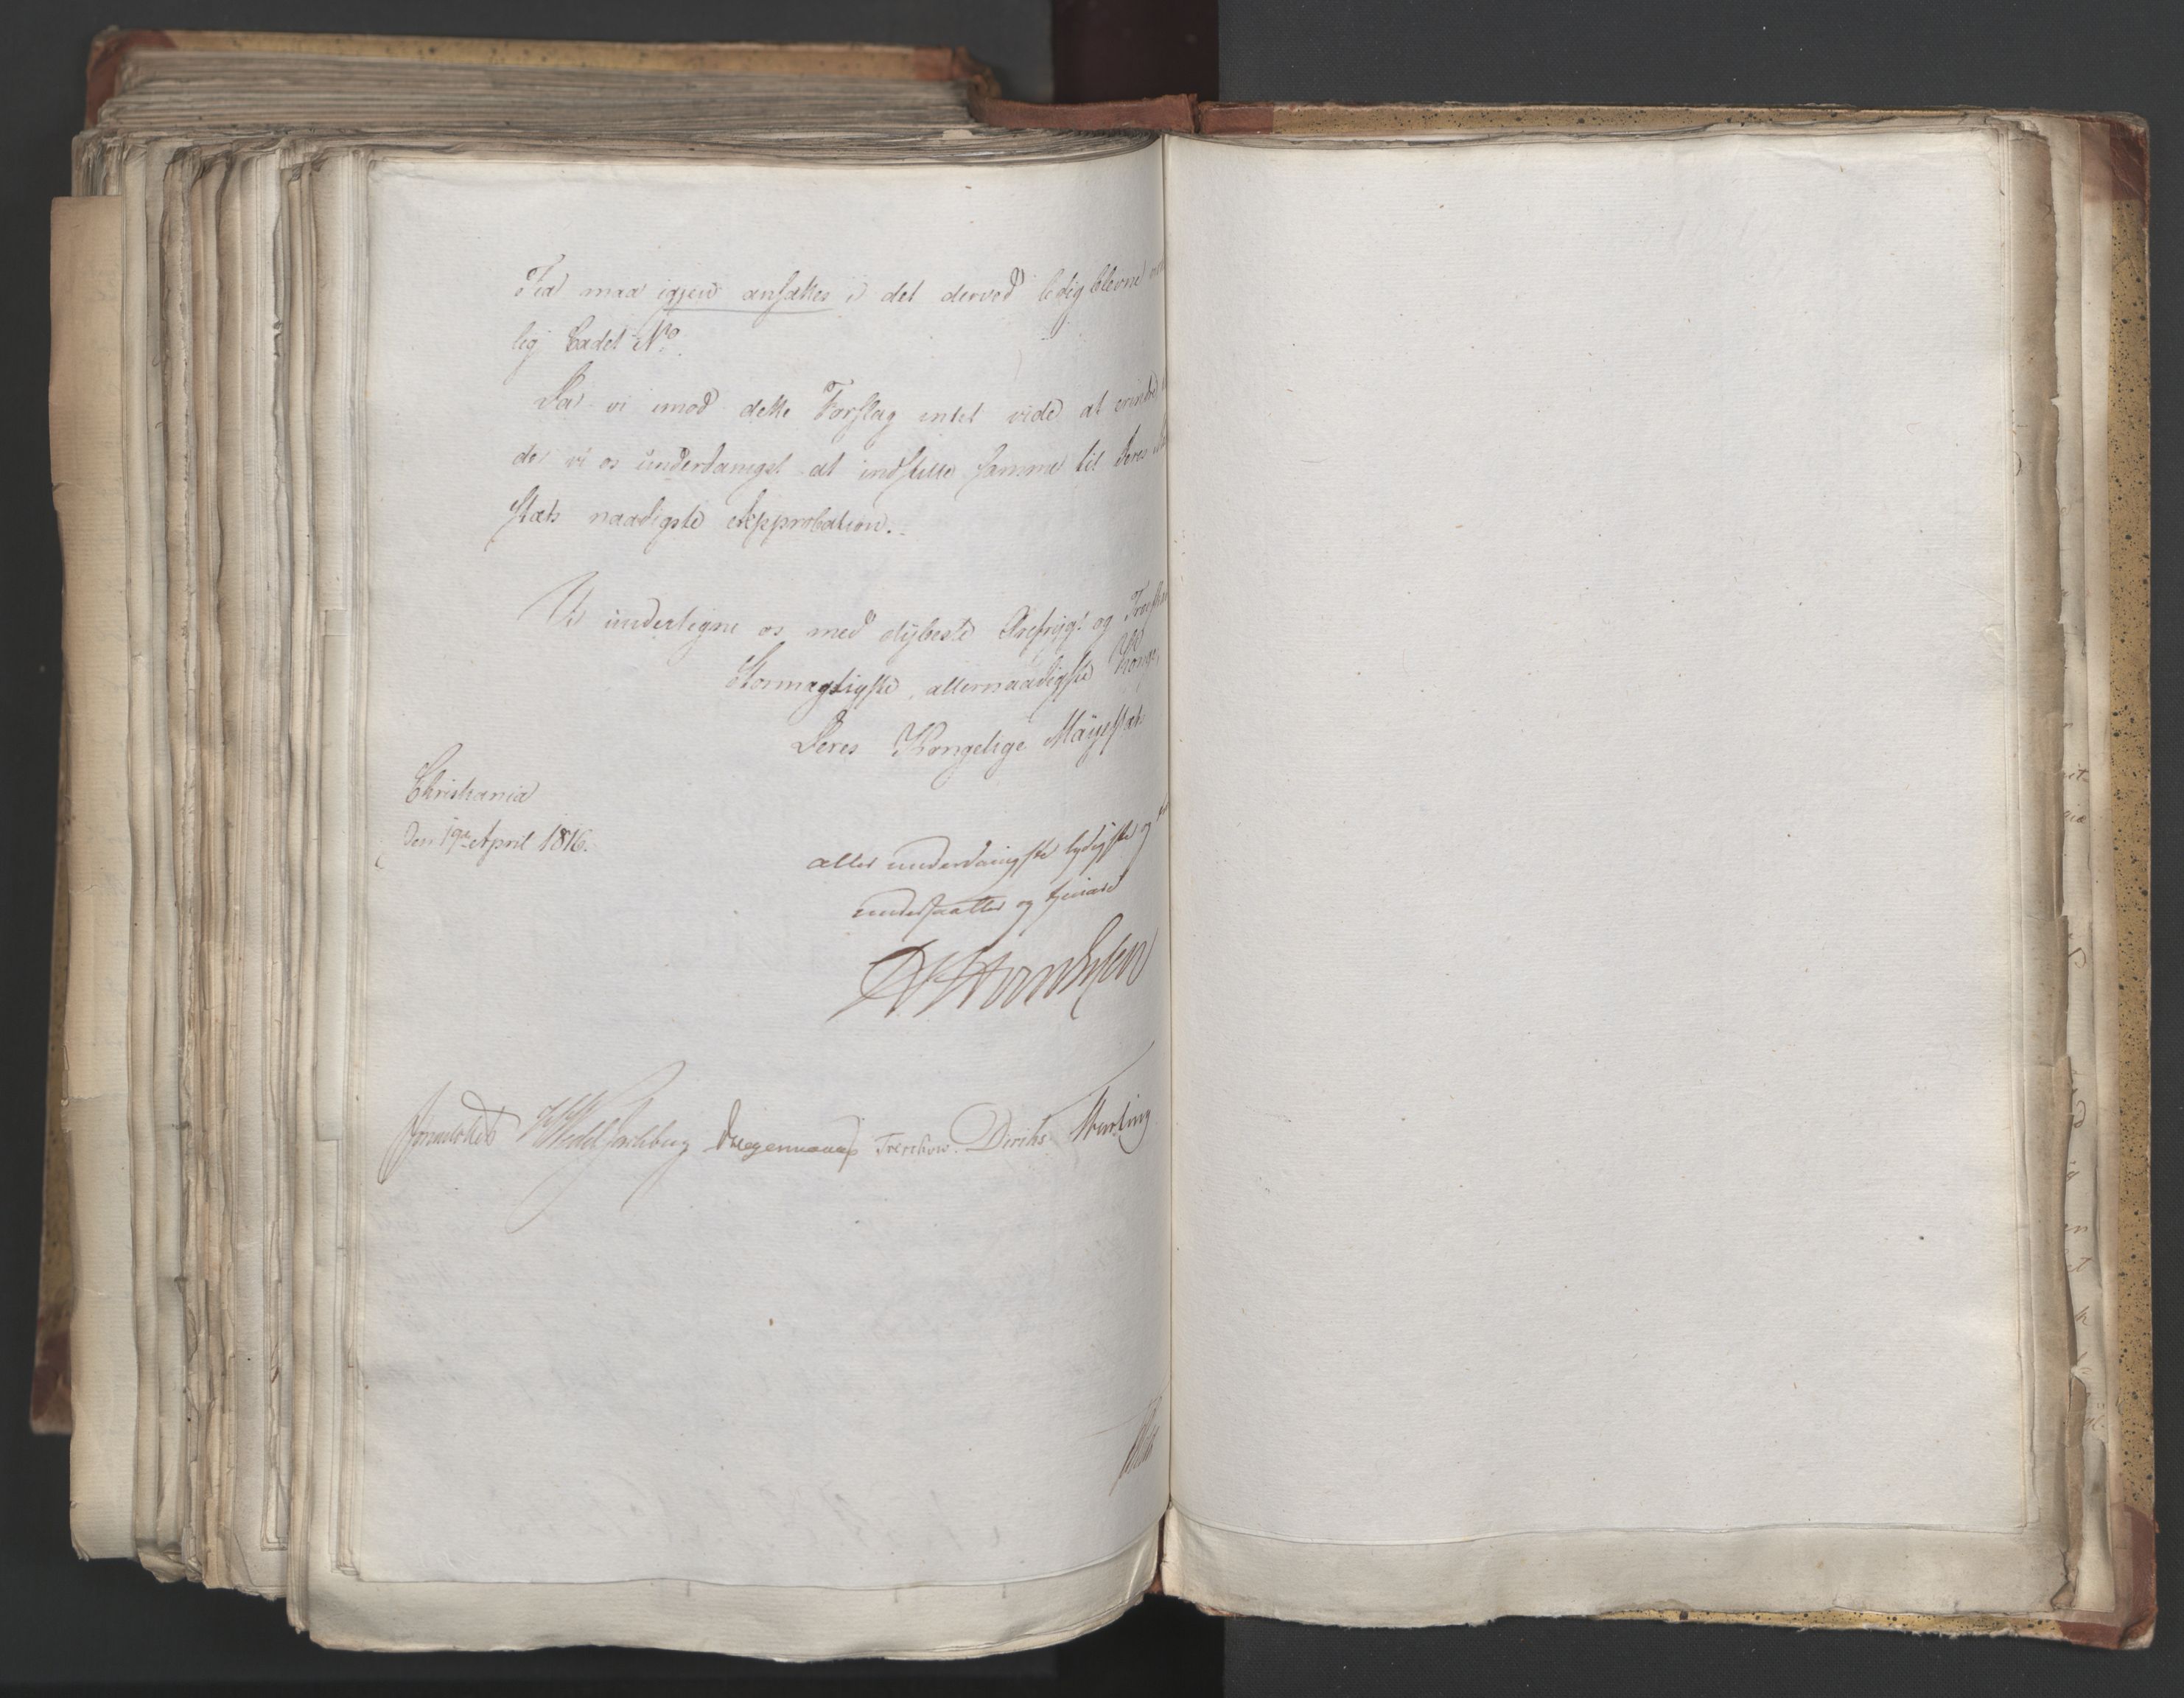 maa igjen ansættes i det derved ledigblevne
lig Cadet No.
Da vi imod dette Forslag intet vide at erindre
de vi os underdanigst at indstille samme til Deres
stæts naadigste Approbation.
Vi undertegne os med dybeste Ærefrygt og
Stormægtigste, allernaadigste Konge,
Deres Kongelige Mayestæts
Christiania
Den 19de April 1816.
aller underdanigste lydigste og
undersaatter og tjenere
Wedel Jarlsberg Treschow. Diriks.